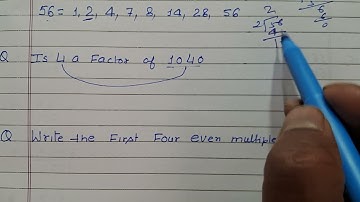 56 = 1, 2, 4, 7, 8, 14, 28, 56
2
2 56
4
1
6
0
Q Is 4 a Factor of 1040
Q Write the First Four even multiple